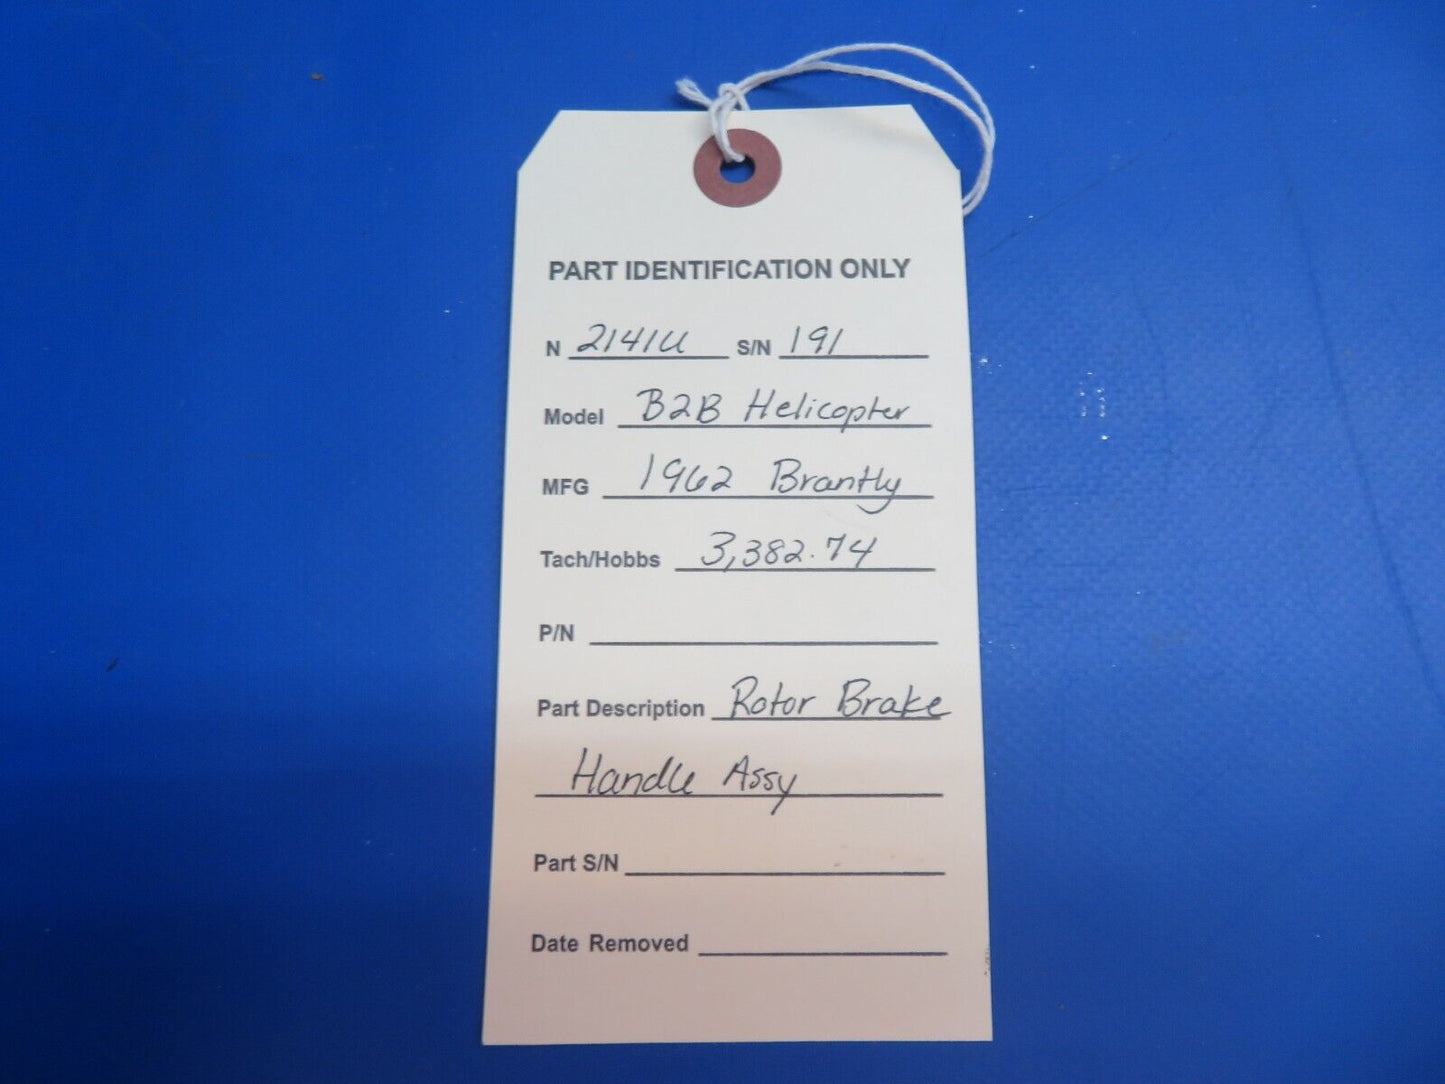 PART IDENTIFICATION ONLY
N 2141U S/N 191
Model B2B Helicopter
MFG 1962 Brantly
Tach/Hobbs 3,382.74
P/N
Part Description Rotor Brake
Handle Assy
Part S/N
Date Removed